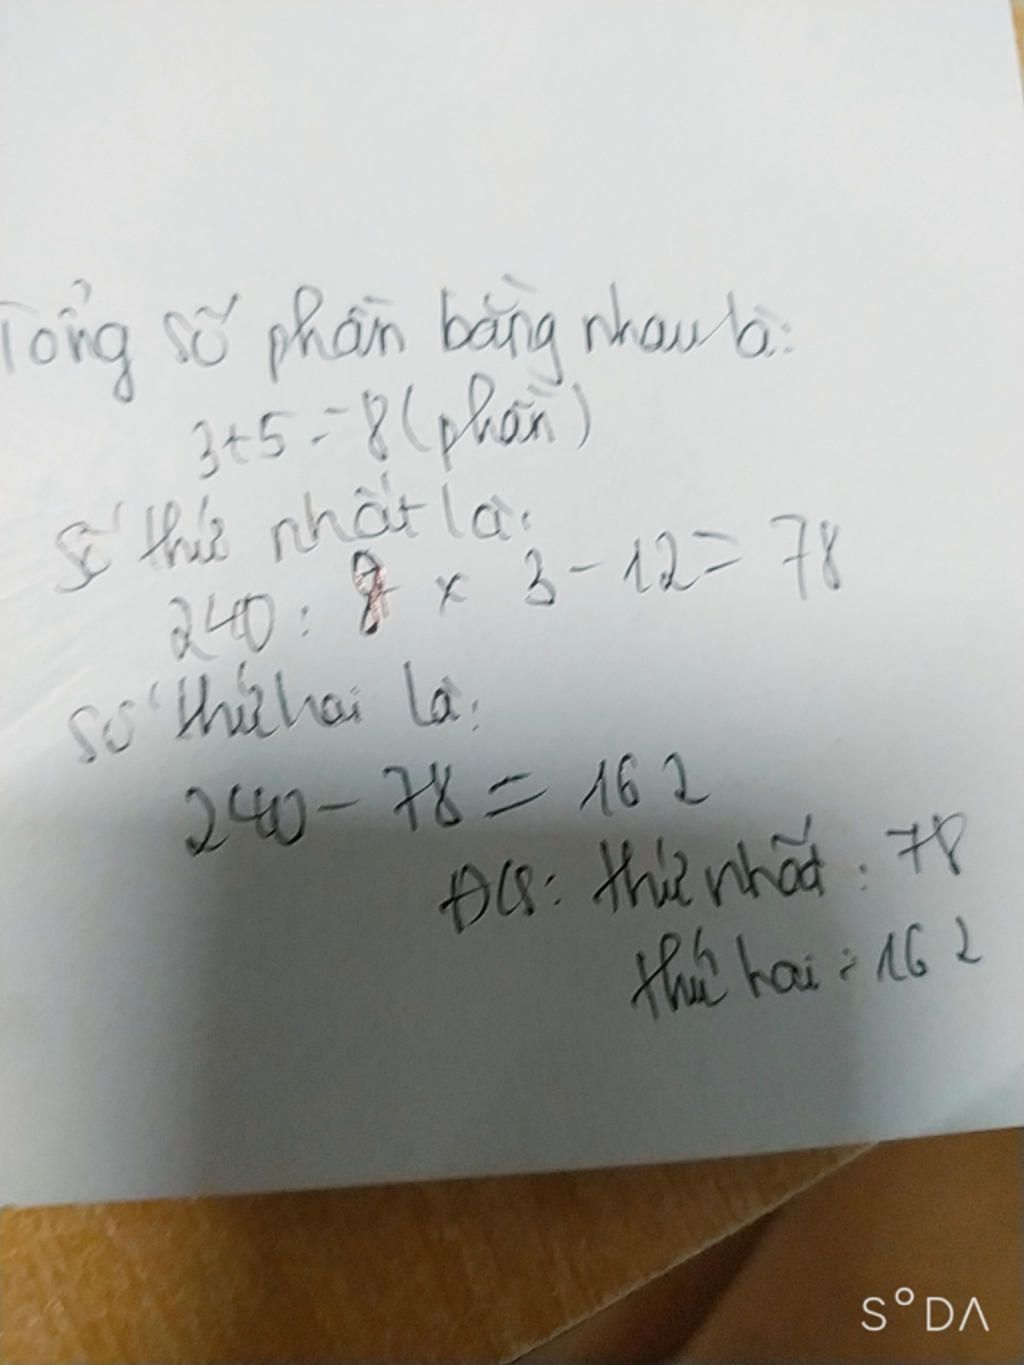 Tổng số phần bằng nhau là:
3+5=8(phần)
Số thứ nhất là:
240: 8 x 3-12=78
Số thứ hai là:
240-78=162
ĐS: thứ nhất: 78
thứ hai: 162
S°DA